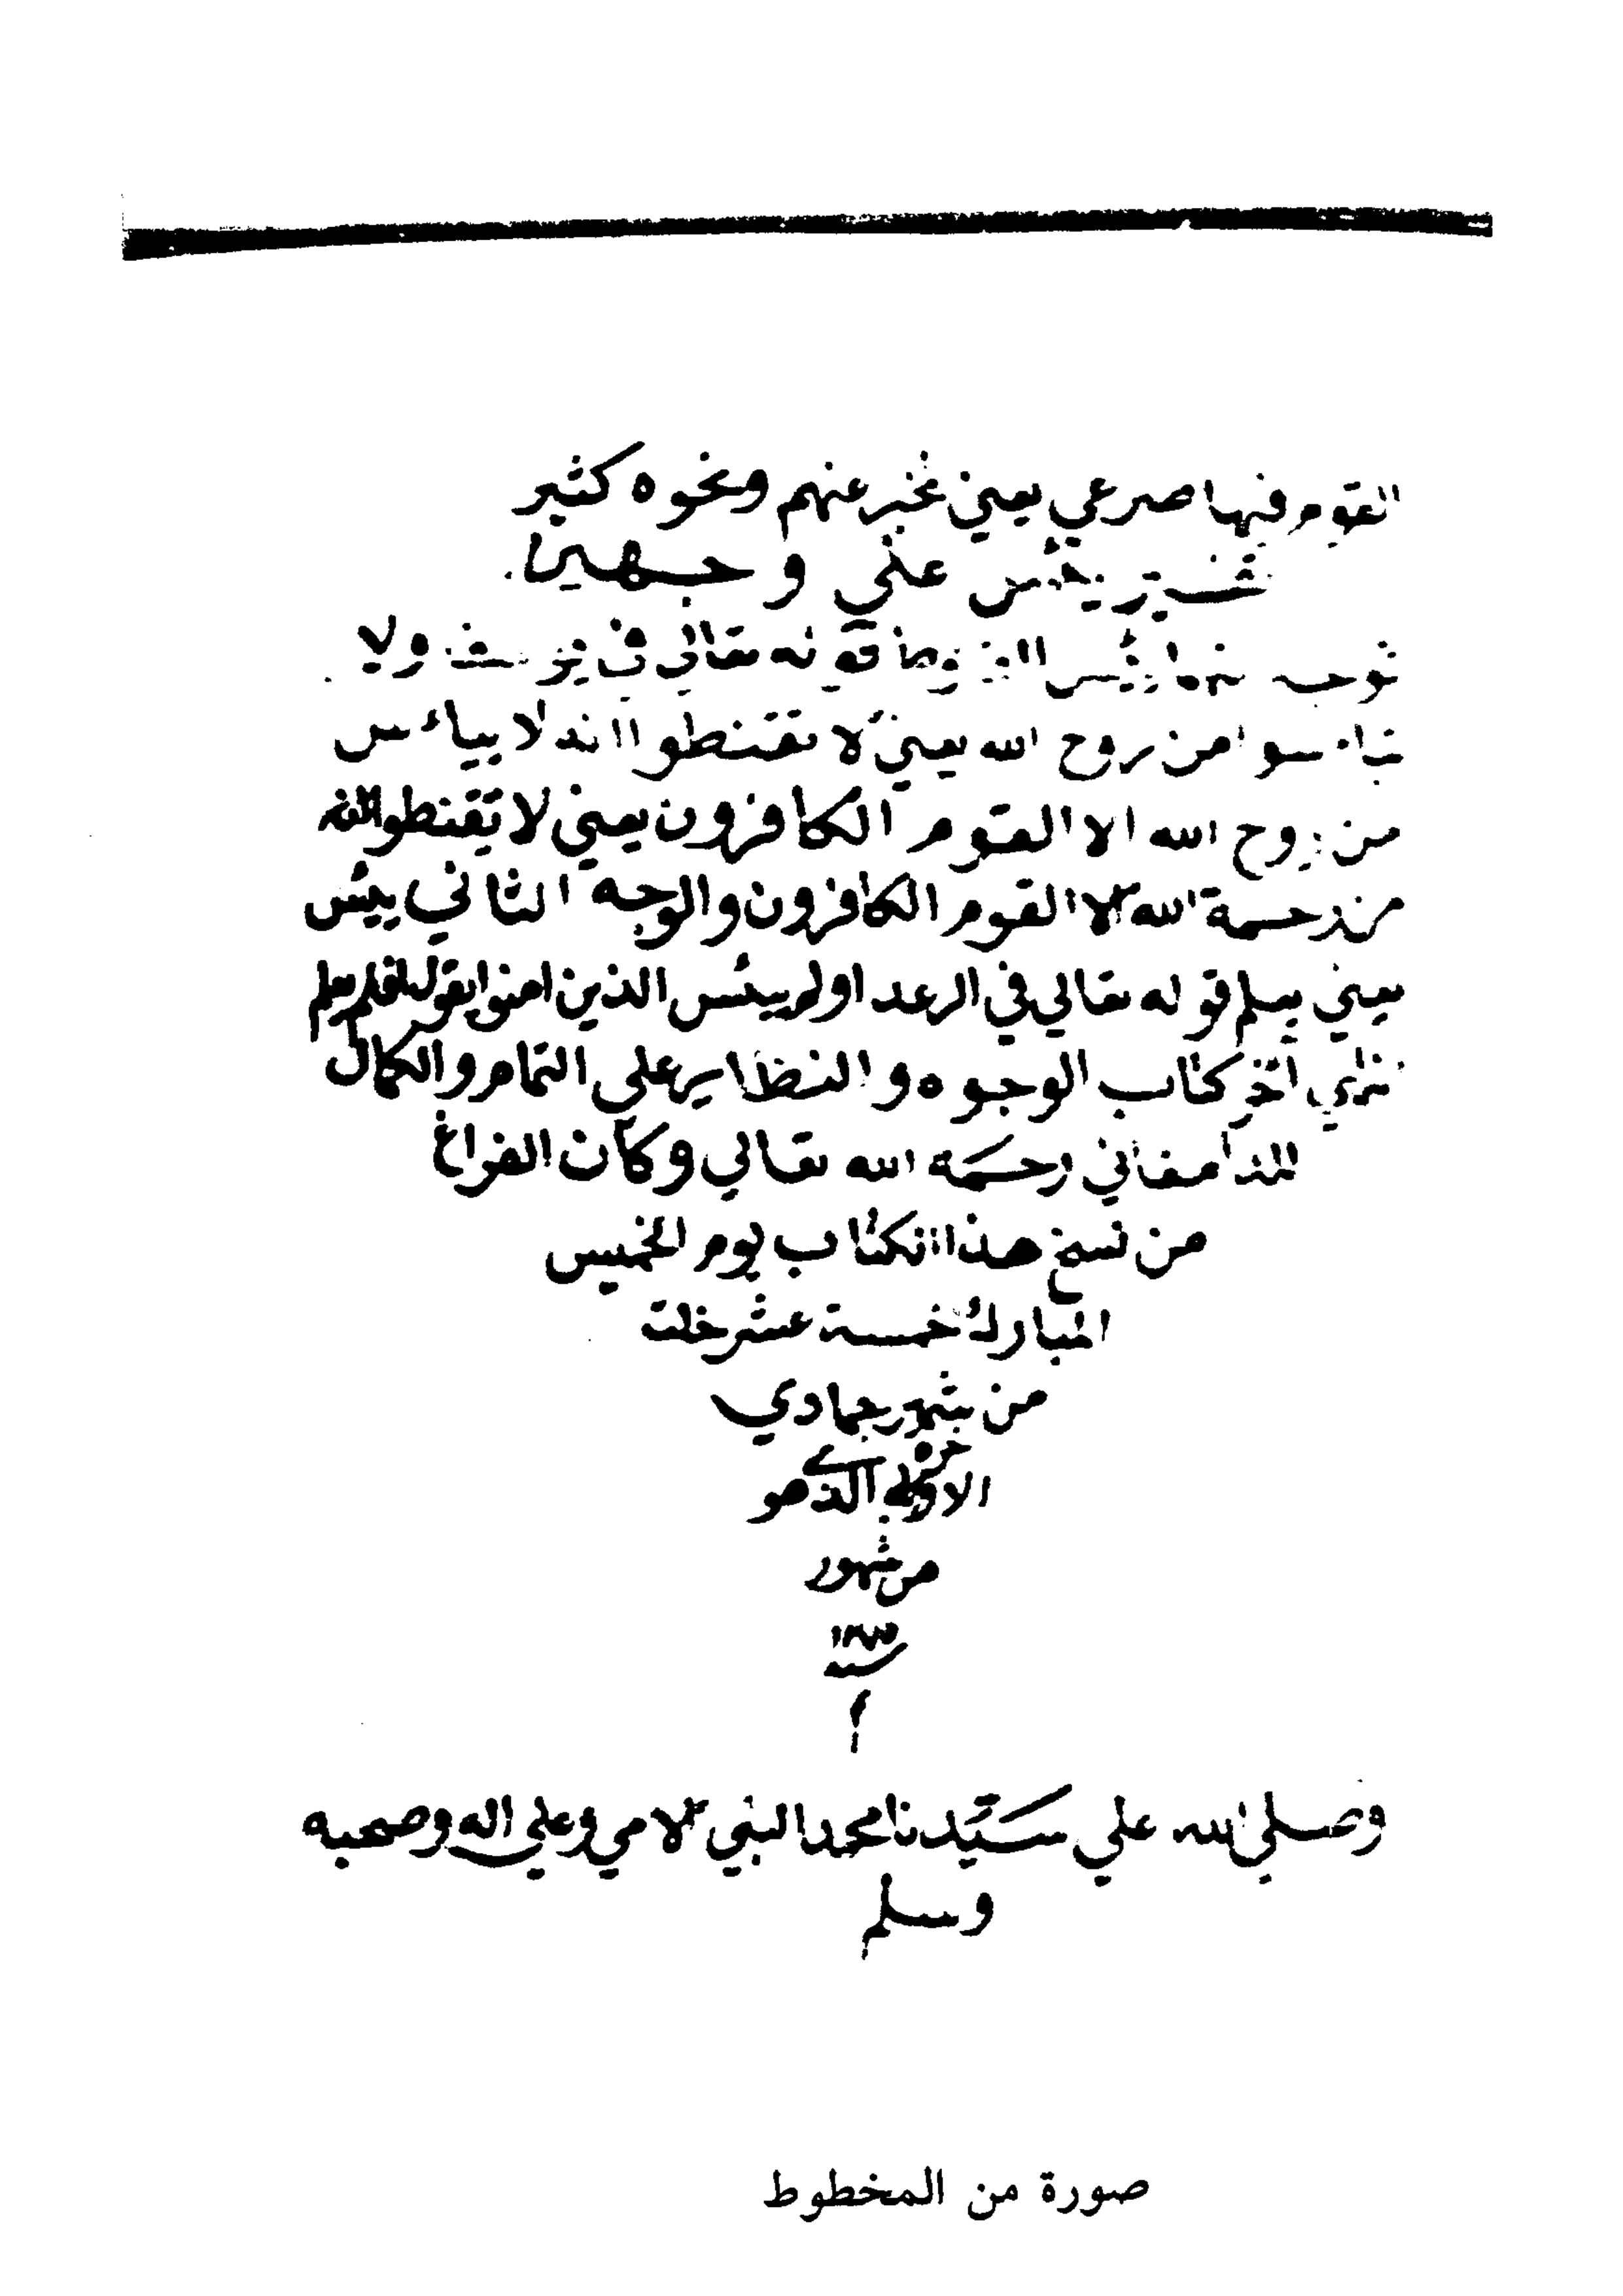 القوم فيها صرعي يعني نخبر عنهم ونحوه كثير
تفسير يئس علي وجهين
فوجه منها يئس القنوط قوله تعالي في يوسف ولا
تياءسوا من روح الله يعني لا تقنطوا انه لا يياءس
من روح الله الا القوم الكافرون يعني لا تقنطوا انه
من رحمة الله الا القوم الكافرون والوجه الثاني ييئس
يعني يعلم قوله تعالي في الرعد اولم ييئس الذين امنوا يقول افلم يعلم
اخر كتاب الوجوه والنظاير علي التمام والكمال
للدامغاني رحمه الله تعالي وكان الفراغ
من نسخ هذا الكتاب يوم الخميس
المبارك خمسة عشر خلت
من شهر جمادي
الذي هو
من شهور
سنة
وصلي الله علي سيدنا محمد النبي الامي وعلي اله وصحبه
وسلم
صورة من المخطوط